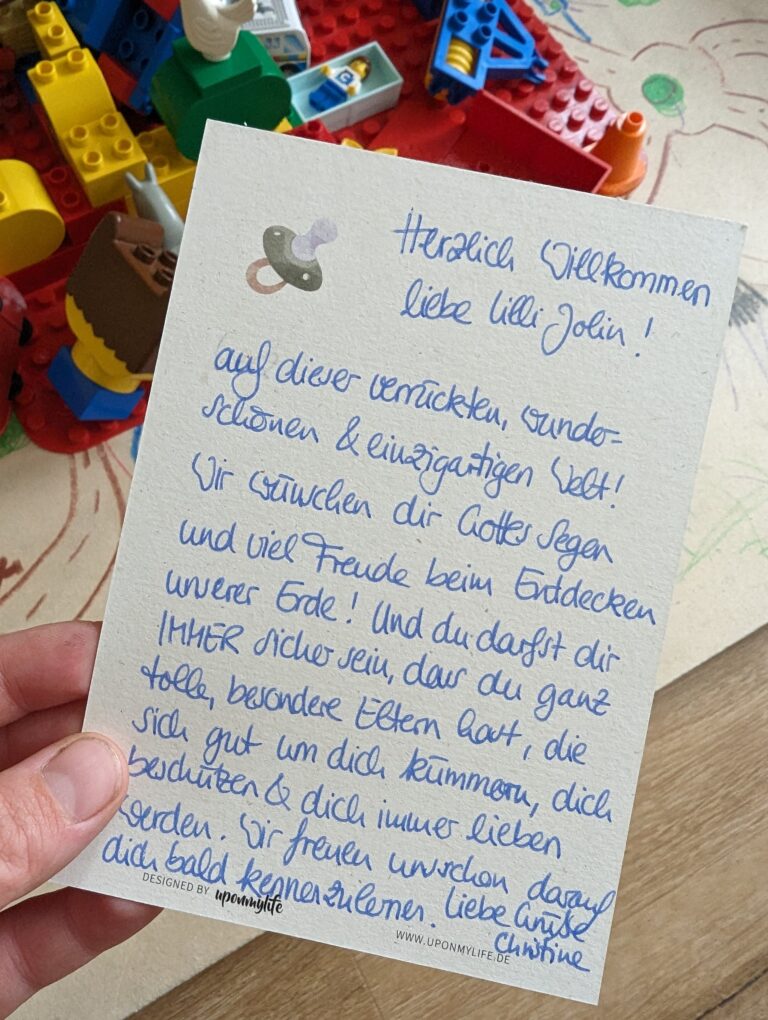 Herzlich Willkommen
liebe Lilli Jolin!
auf dieser verrückten, wunder=
schönen & einzigartigen Welt!
Wir wünschen dir Gottes Segen
und viel Freude beim Entdecken
unserer Erde! Und du darfst dir
IMMER sicher sein, dass du ganz
tolle, besondere Eltern hast, die
sich gut um dich kümmern, dich
beschützen & dich immer lieben
werden. Wir freuen uns schon darauf
dich bald kennenzulernen. Liebe Grüße
Christine
DESIGNED BY uponmylife
WWW.UPONMYLIFE.DE